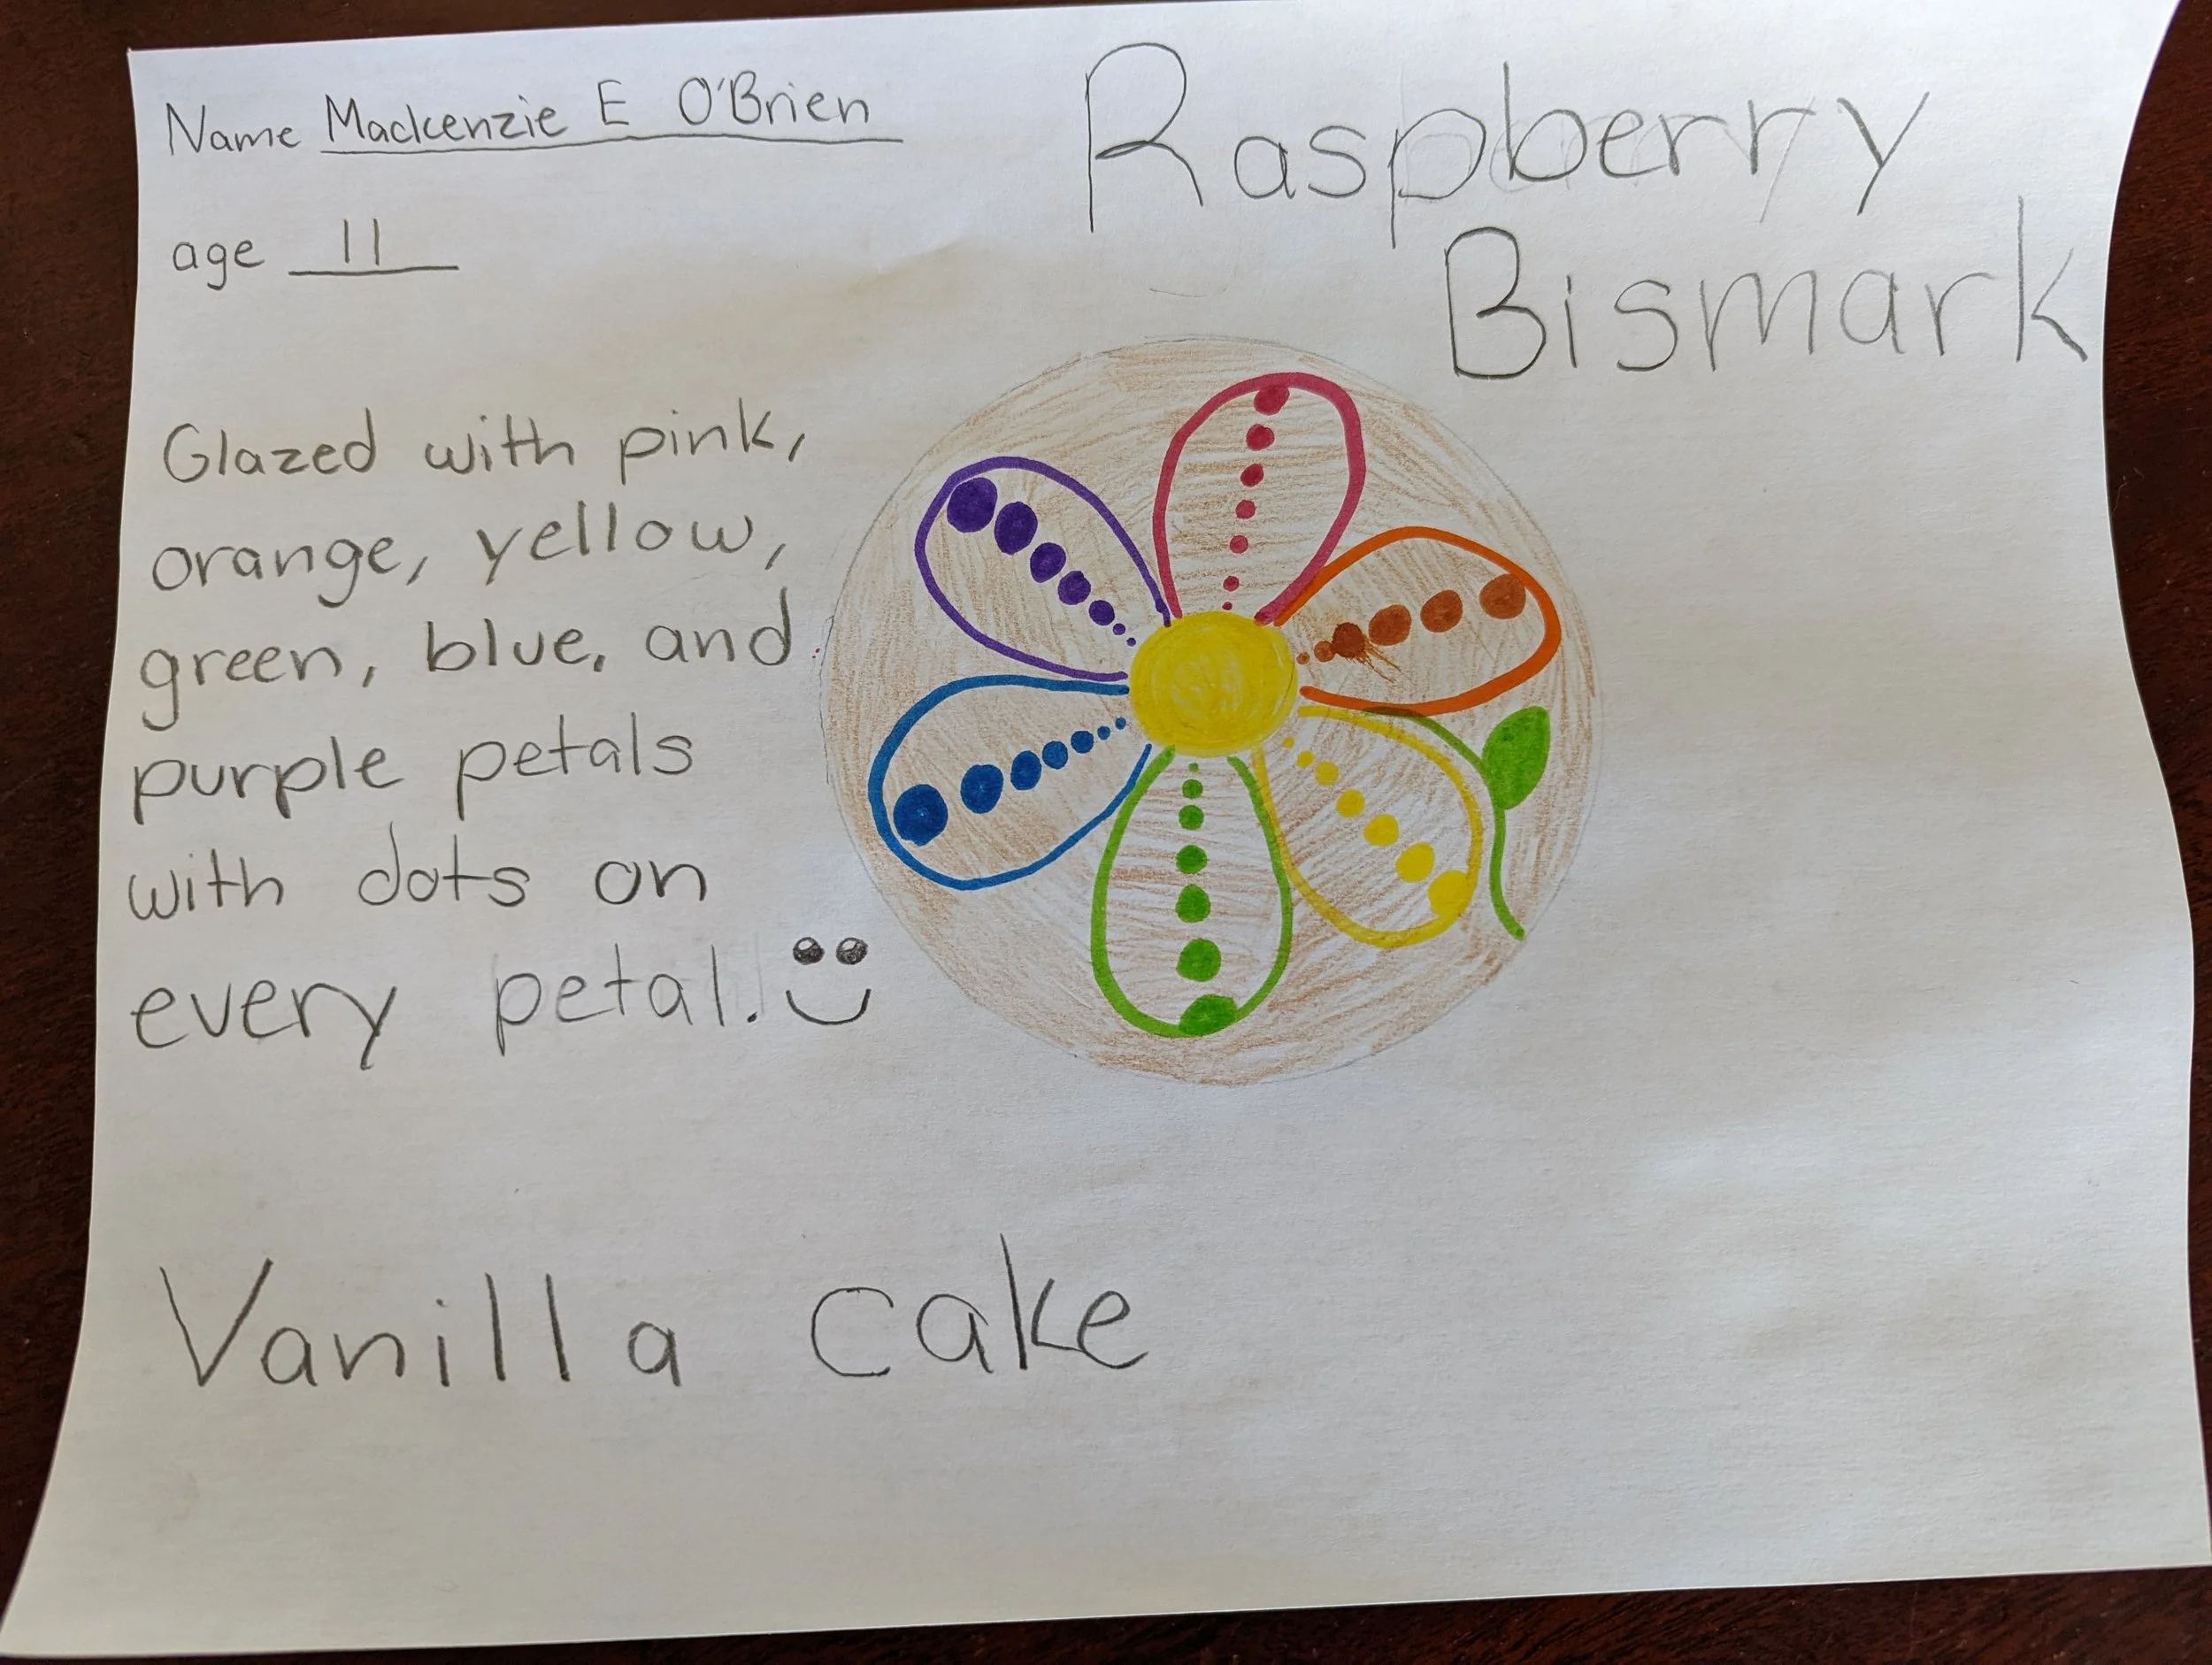 Name Mackenzie E O'Brien
age 11
Raspberry
Bismark
Glazed with pink,
orange, yellow,
green, blue, and
purple petals
with dots on
every petal.
Vanilla cake